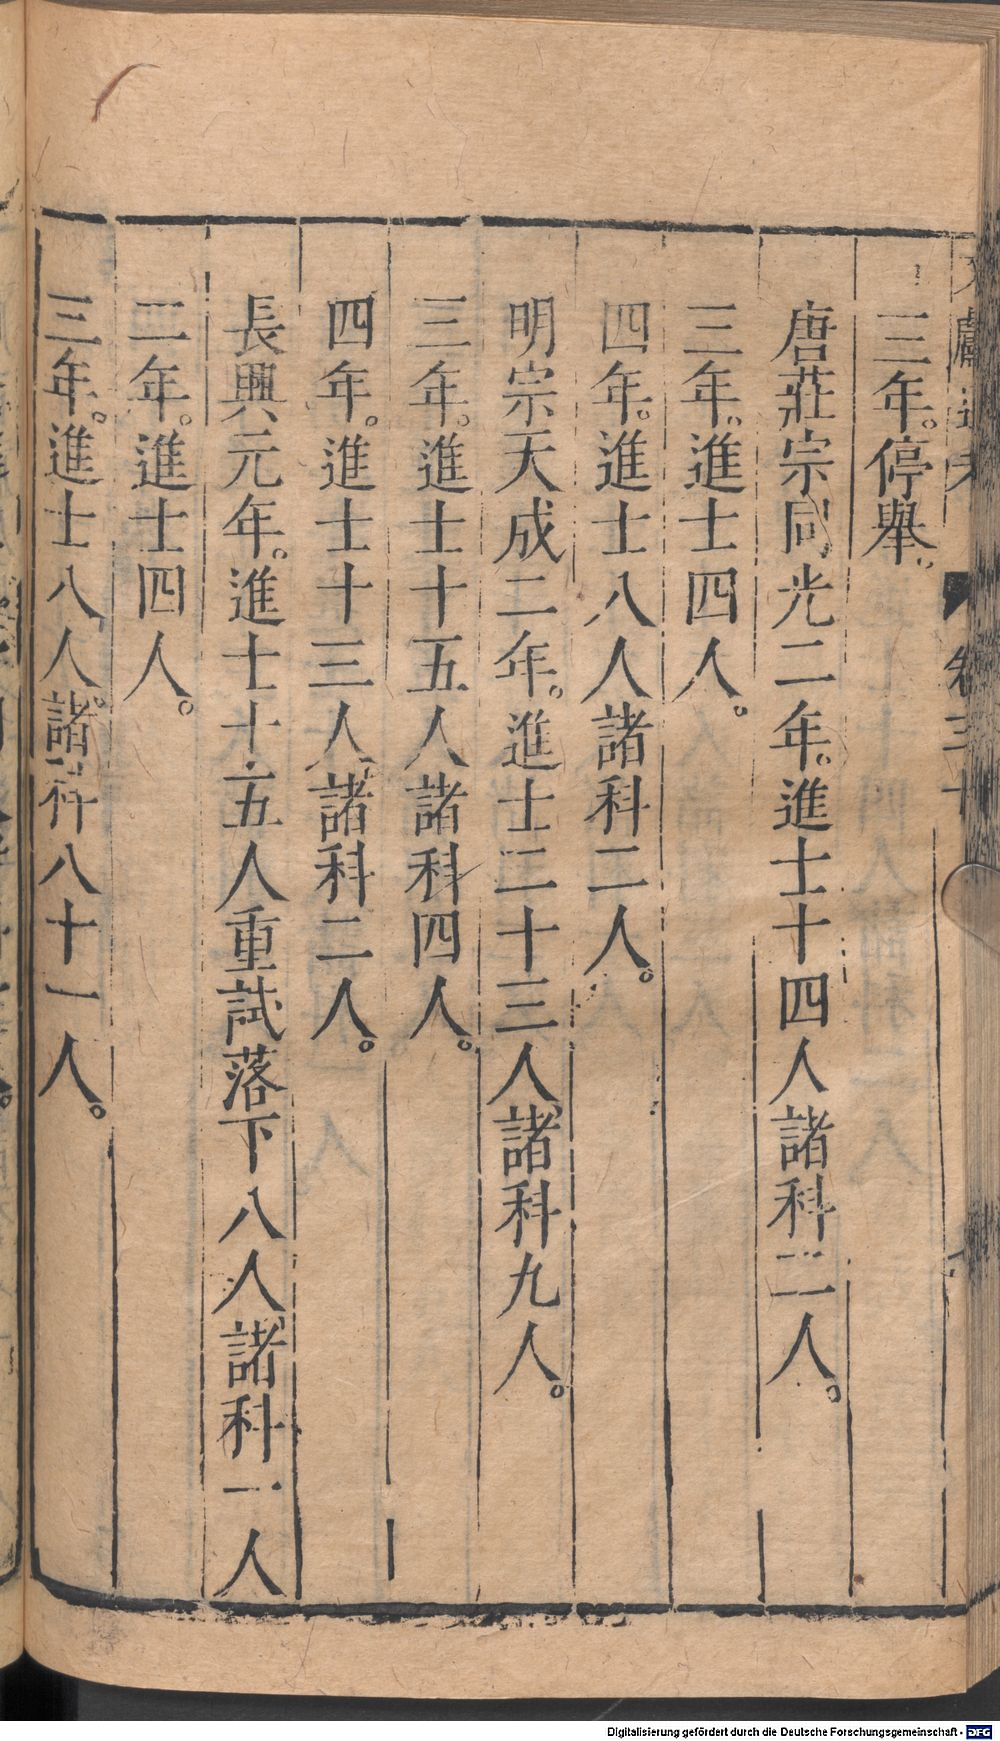 三年。停舉。
唐莊宗同光二年。進士十四人諸科二人。
三年。進士四人。
四年。進士八人諸科二人。
明宗天成二年。進士二十三人、諸科九人。
三年。進士十五人諸科四人。
四年。進士十三人、諸科二人。
長興元年。進士十五人重試落下八人、諸科一人
二年。進士四人。
三年。進士八人。諸科八十一人。
Digitalisierung gefördert durch die Deutsche Forschungsgemeinschaft - DFG